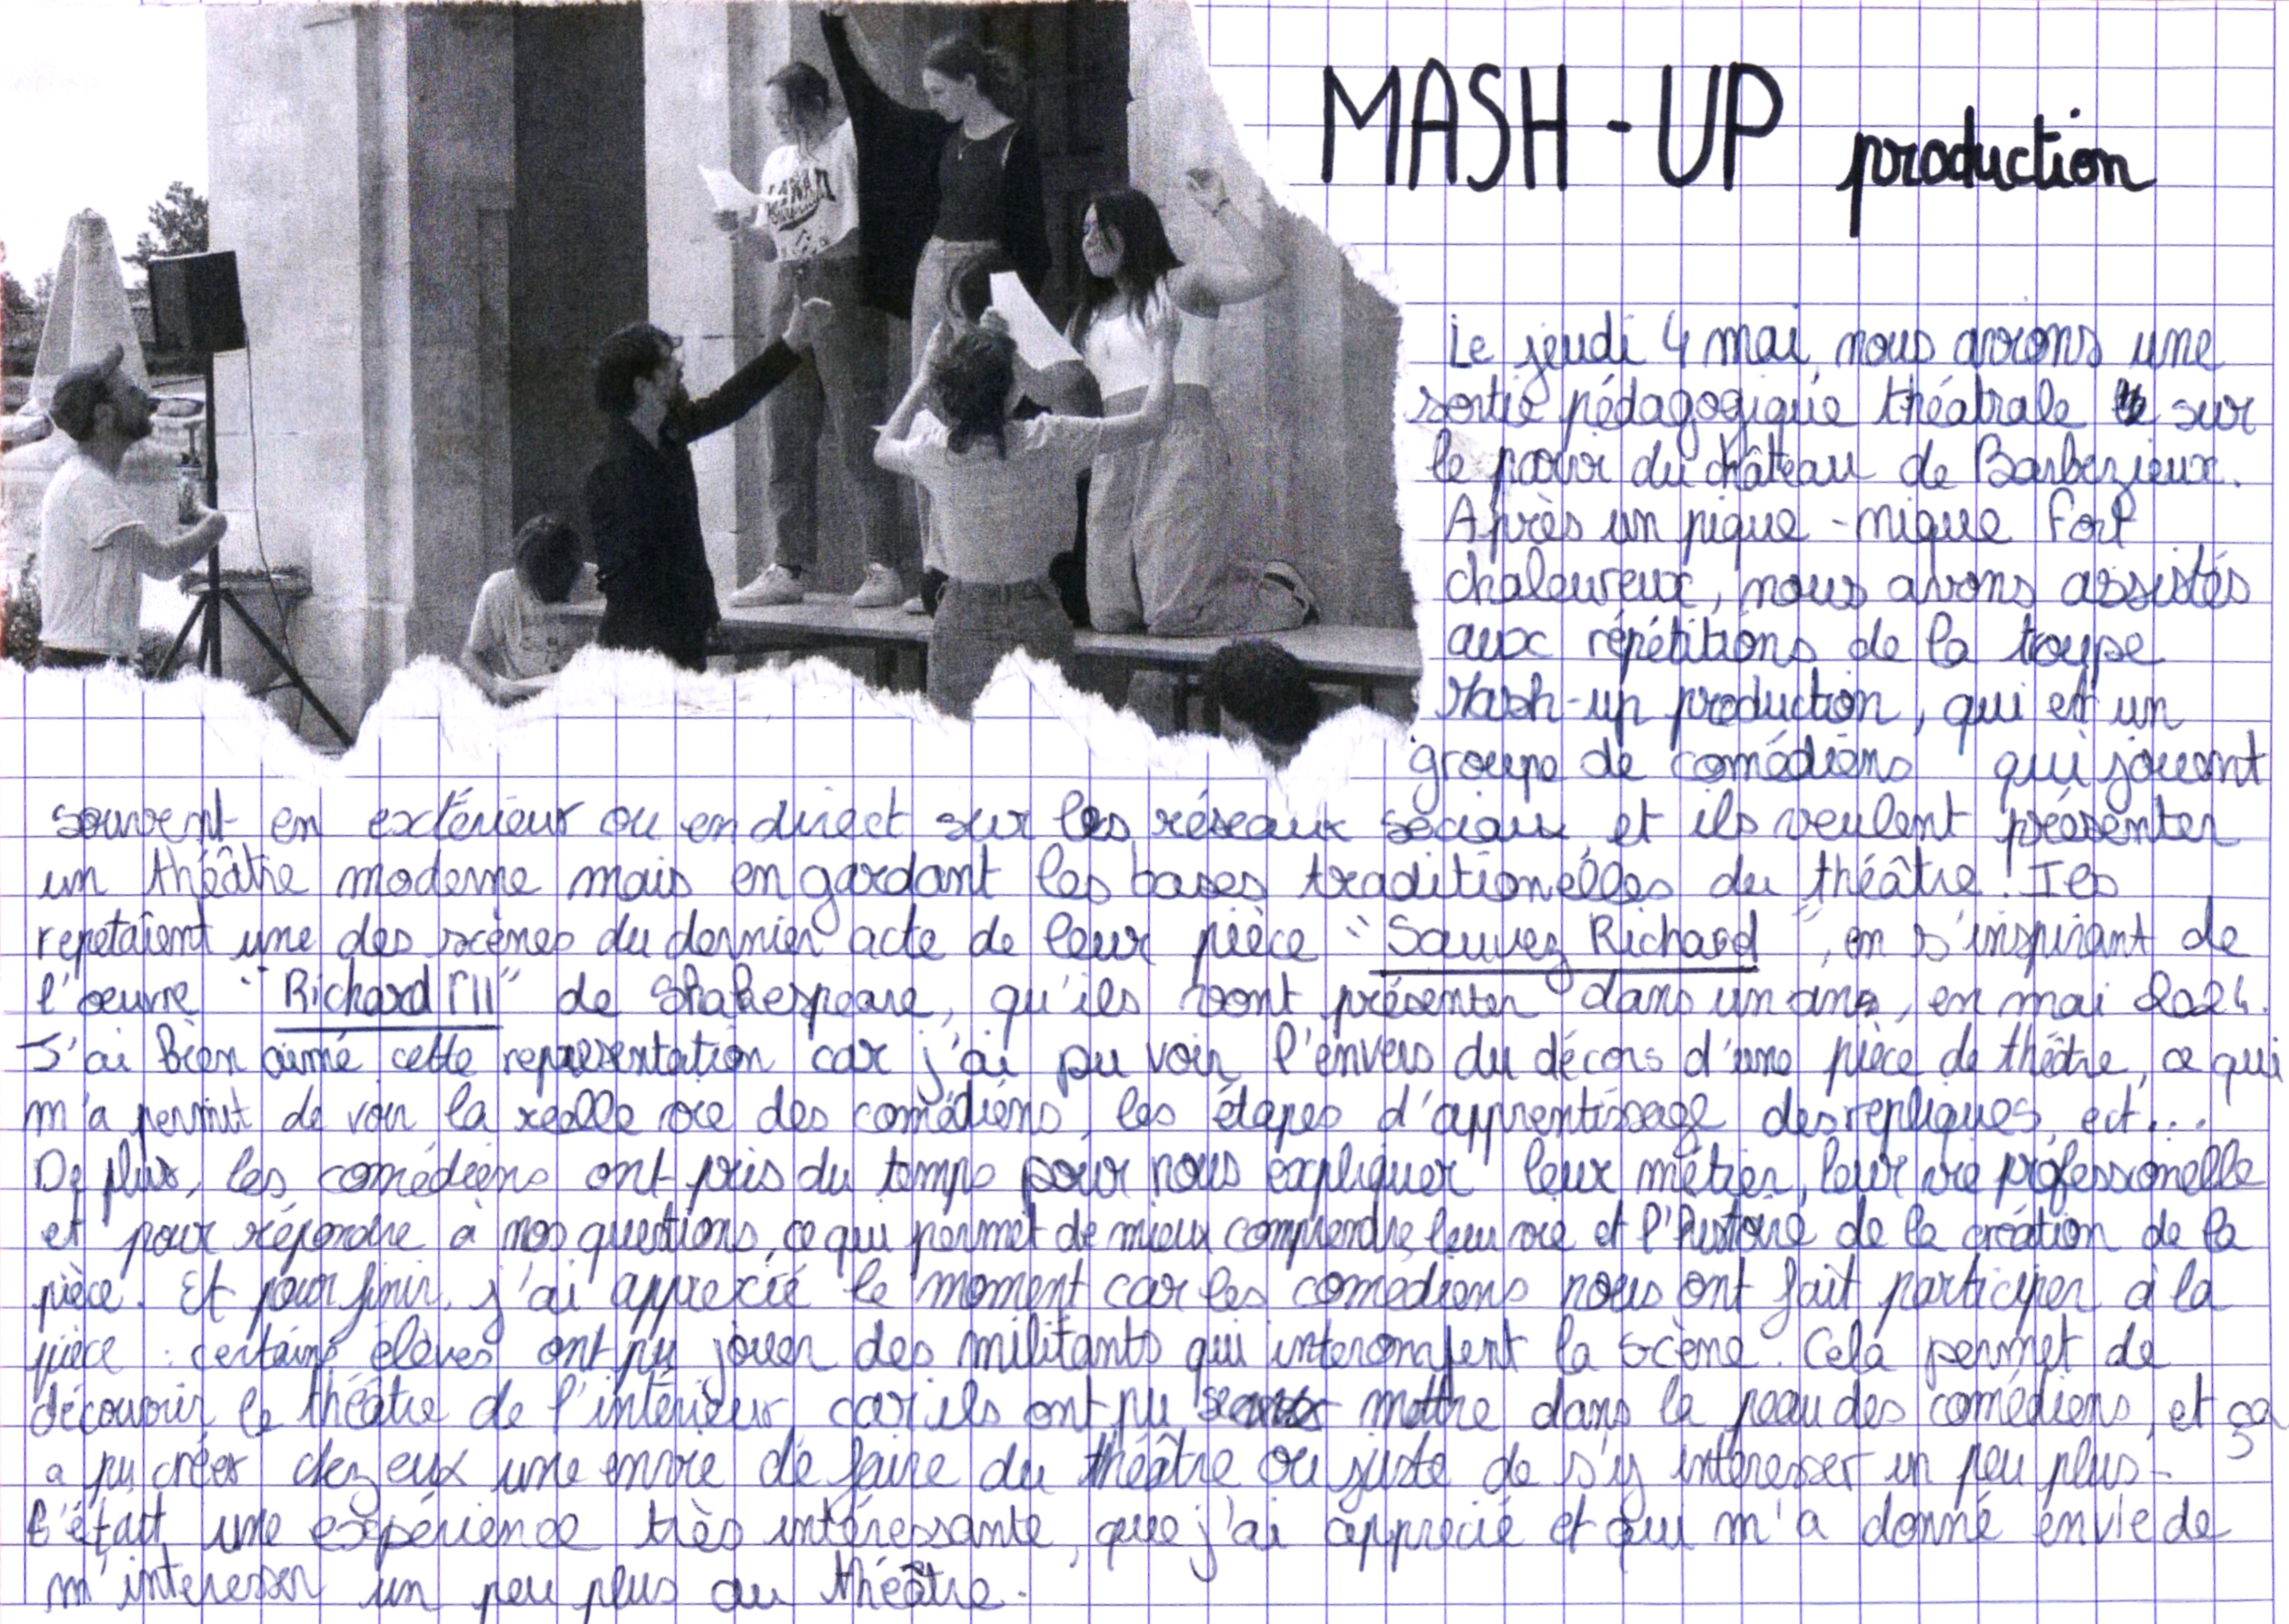 MASH-UP production
Le jeudi 4 mai, nous avons une
sortie pédagogique théatrale sur
le parvi du château de Barbezieux.
Après un pique-nique fort
chaleureux, nous avons assistés
aux répétitions de la troupe
Mash-up production, qui est un
groupe de comédiens qui jouent
souvent en extérieur ou en direct sur les réseaux sociaux, et ils veulent présenter
un théâtre moderne mais en gardant les bases traditionelles du théâtre! Ils
repetaient une des scènes du dernier acte de leur pièce "Sauvez Richard", en s'inspirant de
l'œuvre "Richard III" de Shakespeare, qu'ils vont présenter dans un an, en mai 2024.
J'ai bien aimé cette representation car j'ai pu voir l'envers du décors d'une pièce de théâtre, ce qui
m'a permit de voir la réelle vie des comédiens, les étapes d'apprentissage des repliques, ect...
De plus, les comédiens ont pris du temps pour nous expliquer leur métier, leur vie professionelle
et pour répondre à nos questions, ce qui permet de mieux comprendre leur vie et l'histoire de la création de la
pièce. Et pour finir, j'ai apprécié le moment car les comédiens nous ont fait participer à la
pièce : certains élèves ont pu jouer des militants qui interompent la scène. Cela permet de
découvrir le théâtre de l'intérieur car ils ont pu se mettre dans la peau des comédiens, et ça
a pu créer chez eux une envie de faire du théâtre ou juste de s'y interesser un peu plus.
C'était une expérience très intéressante, que j'ai apprécié et qui m'a donné envie de
m'interesser un peu plus au théâtre.